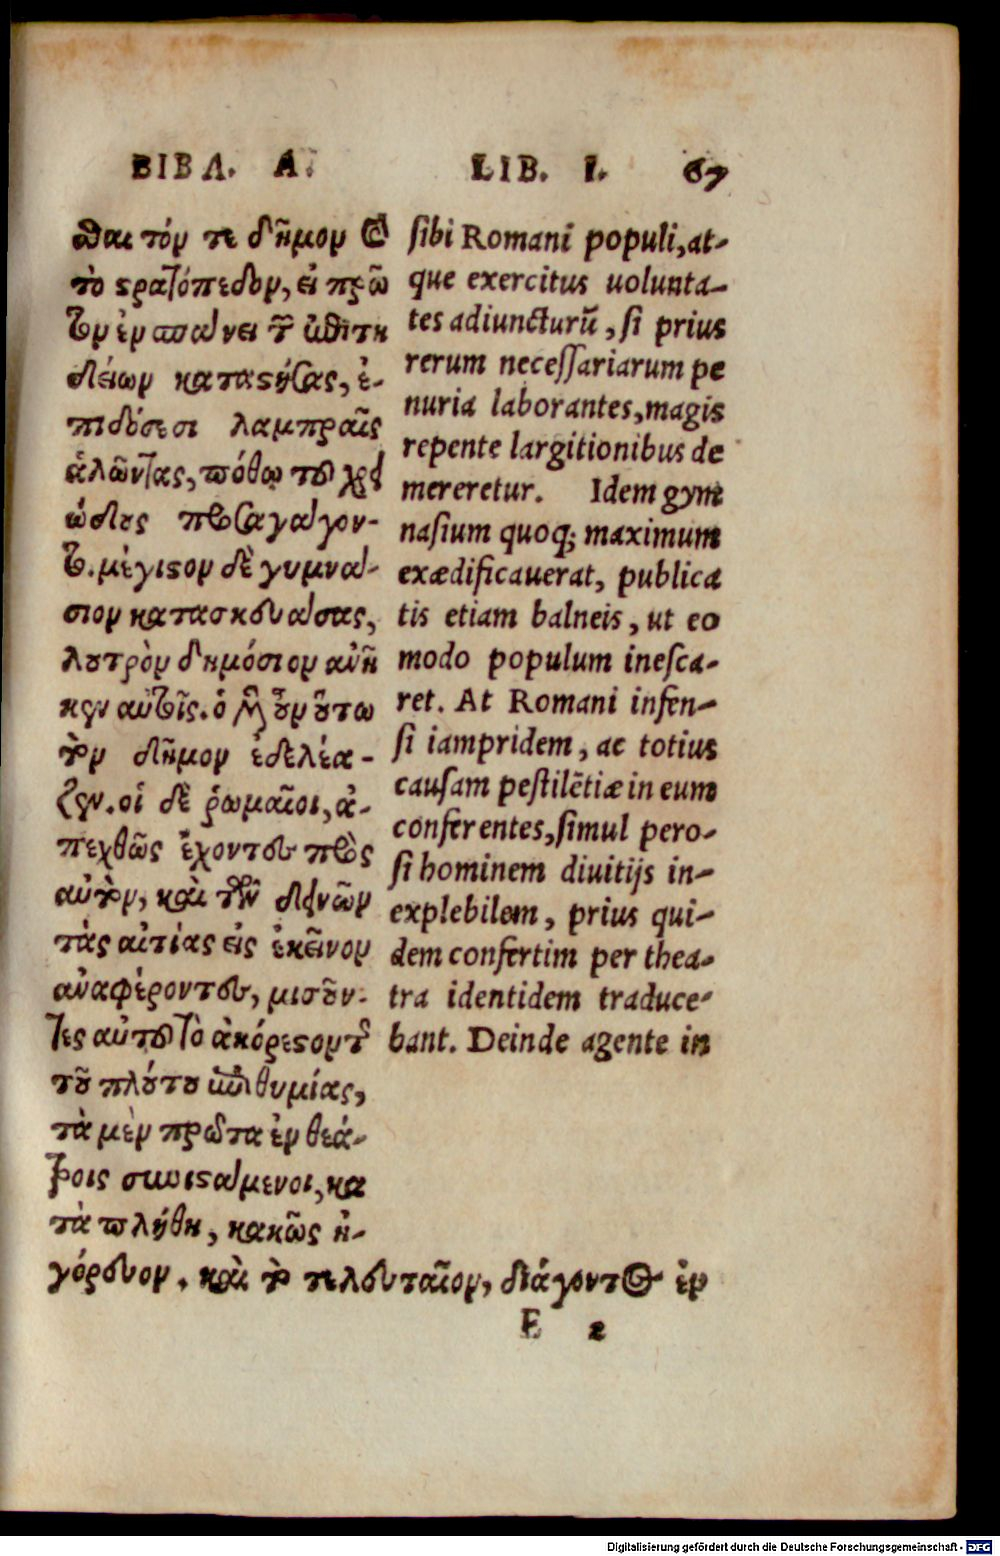 ΒΙΒΛ. Α.
LIB. I. 67
σθαι τόν τε δῆμον καὶ
τὸ στρατόπεδον, εἰ πρῶ
τον ἐν σπάνει τῶν ἐπιτη
δείων καταστήσας, ἐ-
πιδόσεσι λαμπραῖς
ἁλῶντας, πόθῳ τοῦ χρει
ώδους προσαγάγον-
το. μέγιστον δὲ γυμνά-
σιον κατασκευάσας,
λουτρὸν δημόσιον ἀνῆ
κεν αὐτοῖς. ὁ μὲν οὖν οὕτω
τὸν δῆμον ἐδελέα-
ζεν. οἱ δὲ ῥωμαῖοι, ἀ-
πεχθῶς ἔχοντες πρὸς
αὐτὸν, καὶ τῶν δεινῶν
τὰς αἰτίας εἰς ἐκεῖνον
ἀναφέροντες, μισοῦν-
τες αὐτοῦ τὸ ἀκόρεστον τῆς
τοῦ πλούτου ἐπιθυμίας,
τὰ μὲν πρῶτα ἐν θεά-
τροις συνιστάμενοι, κα
τὰ πλήθη, κακῶς ἠ-
γόρευον. καὶ τὸ τελευταῖον, διάγοντος ἐν
sibi Romani populi, at-
que exercitus uolunta-
tes adiuncturũ, si prius
rerum necessariarum pe
nuria laborantes, magis
repente largitionibus de
mereretur. Idem gym
nasium quoq; maximum
exædificauerat, publica
tis etiam balneis, ut eo
modo populum inesca-
ret. At Romani infen-
si iampridem, ac totius
causam pestilẽtiæ in eum
conferentes, simul pero-
si hominem diuitijs in-
explebilem, prius qui-
dem confertim per thea-
tra identidem traduce-
bant. Deinde agente in
E 2
Digitalisierung gefördert durch die Deutsche Forschungsgemeinschaft - DFG